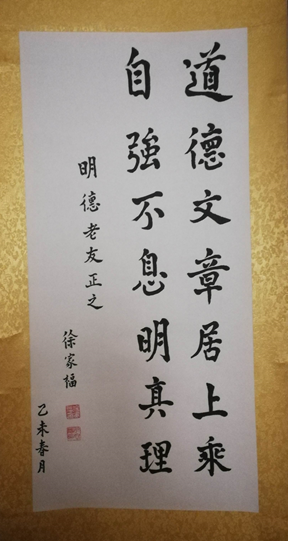 道德文章居上乘
自強不息明真理
明德老友正之
徐家福
乙未春月